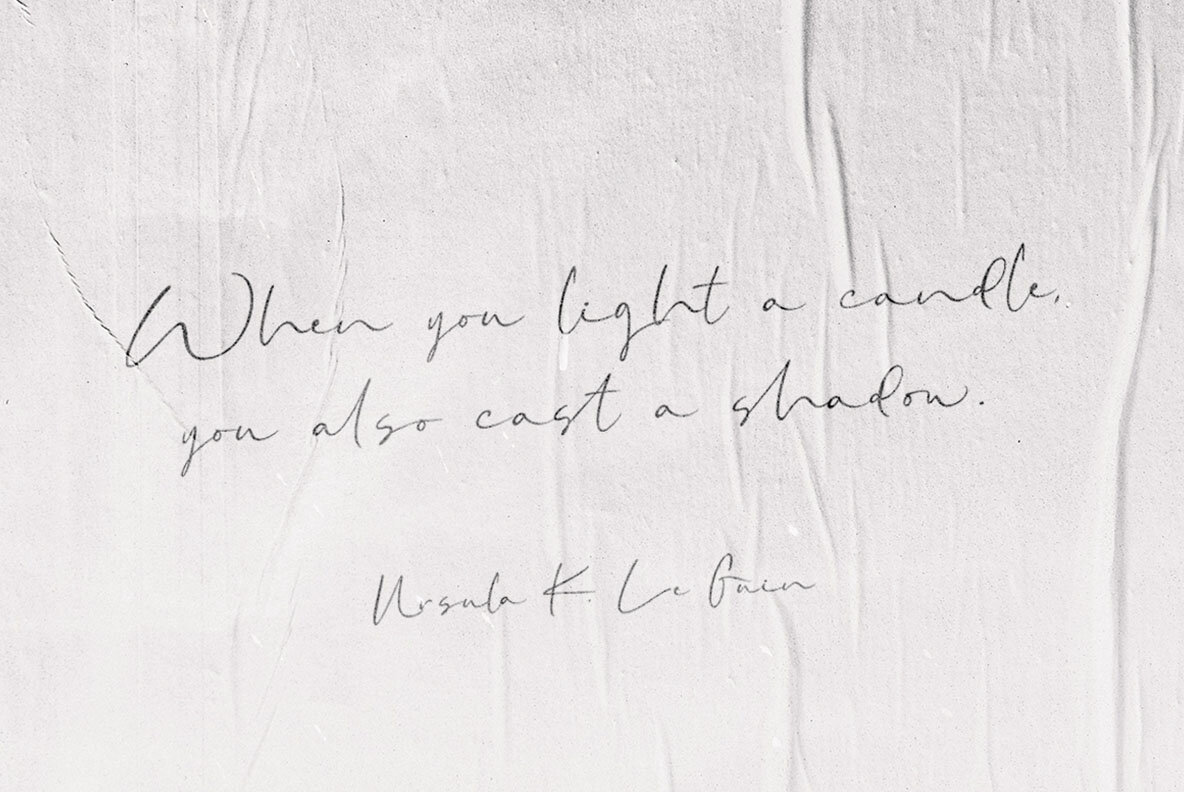 When you light a candle,
you also cast a shadow.
Ursula K. Le Guin